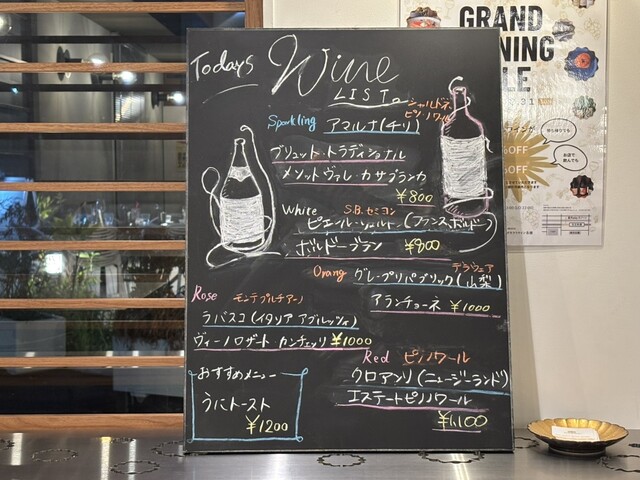 Todays Wine
LIST。
シャルドネ
ピノノワール
Sparkling アマルナ(チリ)
ブリュット・トラディショナル
メソッドヴァレ・カサブランカ
¥800
White S.B. セミヨン
ピエール・ジュルト(フランス ボルドー)
ボルドーブラン ¥900
Orang デラウェア
グレープリパブリック(山梨)
アランチョーネ ¥1000
Rose モンテプルチアーノ
ラバスコ(イタリア アブルッツィ)
ヴィーノロザート カンチェッリ ¥1000
Red ピノノワール
クロアンリ(ニュージーランド)
エステートピノノワール
¥1,100
おすすめメニュー
うにトースト
¥1200
GRAND